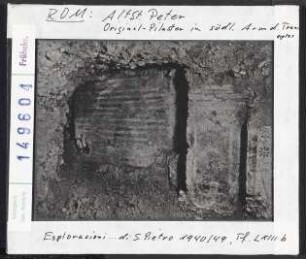 ROM: Altst Peter
Original-Pilaster in südl. Arm d. Tran
septes
Frühchr.
149604
Esplorazioni d. S. Pietro 1940/49, Tf. LXIII b